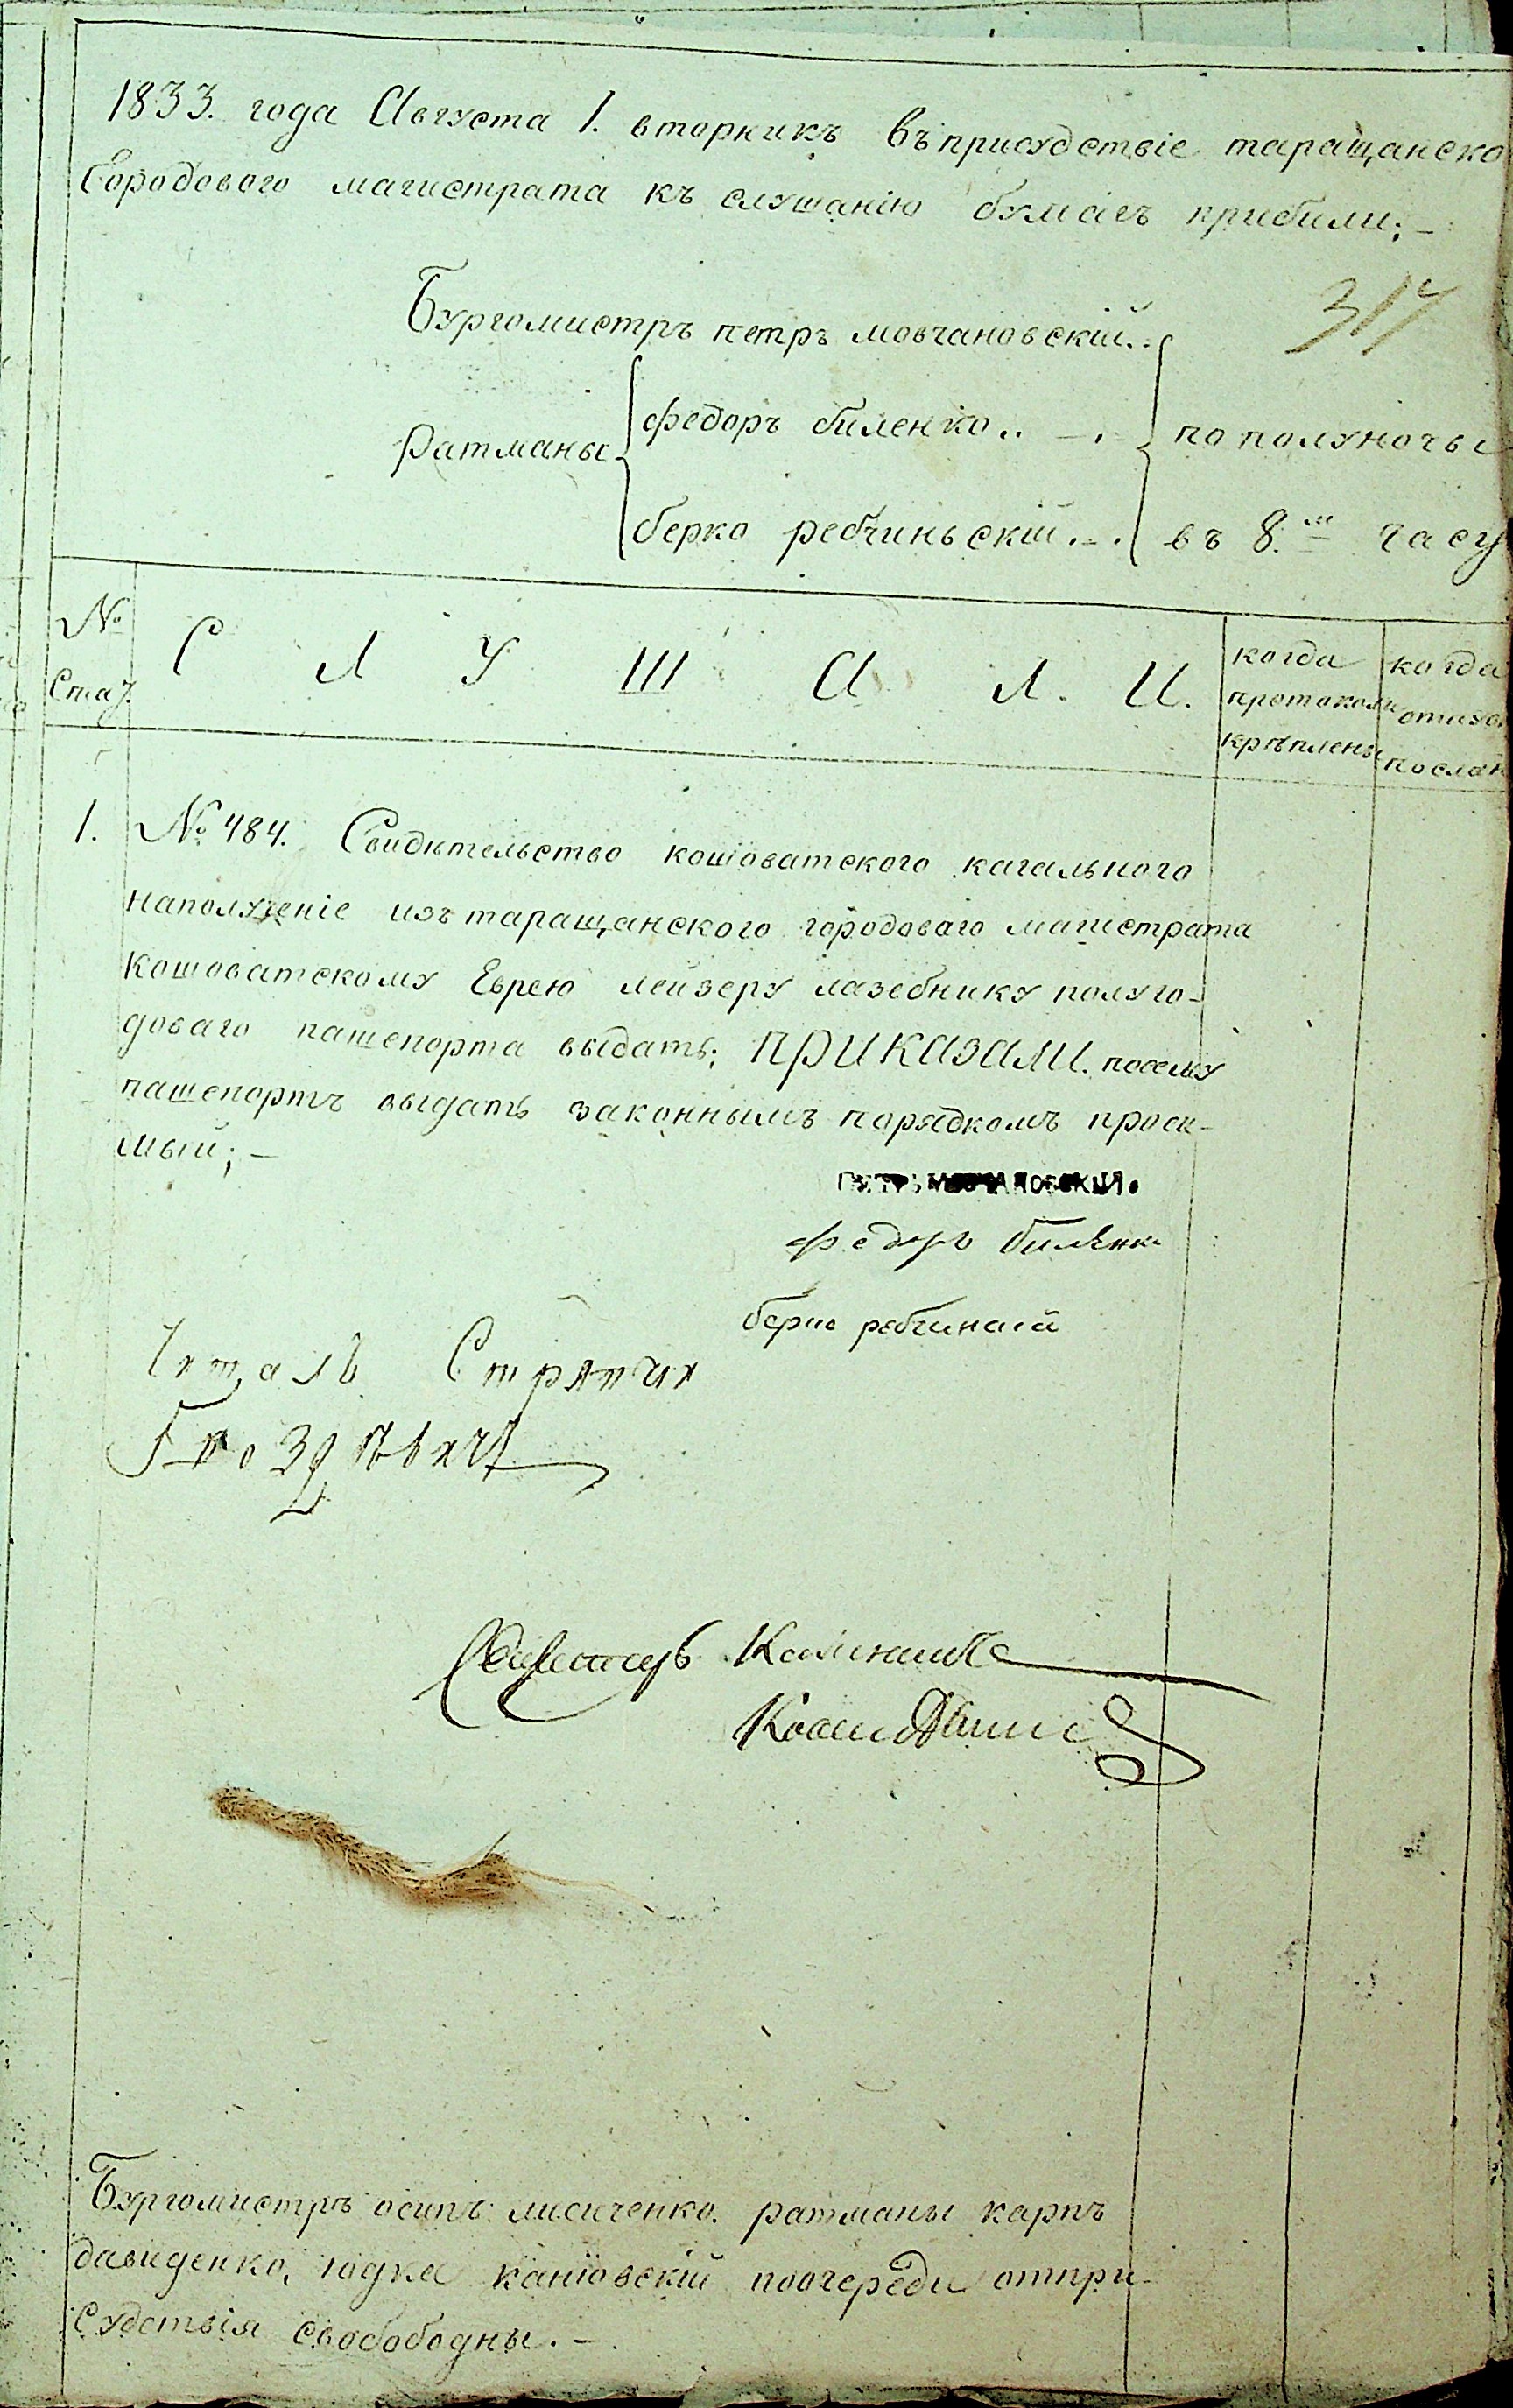 1833. года Августа 1. вторникъ въ присудствіе таращанско
Городового магистрата къ слушанію бумагъ прибили; —
317
Бургомистръ петръ мовчановскій..
Ратманы
федоръ биленко..
пополуночы
берко ребчиньскій.
въ 8.м часу
№ Стат.
С Л У Ш А Л И.
когда протоколы крѣплены
когда
послан
1. № 484. Свидѣтельство кошоватского кагального
наполученіе изъ таращанского городоваго магистрата
Кошоватскому Еврею лейзеру лазебнику полуго-
доваго пашепорта выдать; ПРИКАЗАЛИ. посему
пашепортъ выдать законнымъ порядкомъ проси-
мый; —
ПЕТРЪ МОВЧАНОВСКІЙ.
федоръ биленко
берко
Читалъ Стряпчи
Бургомистръ осипъ лисиченко. ратманы карпъ
давиденко, юдка каніовскій поочереди отпри-
судствія свобободны. —